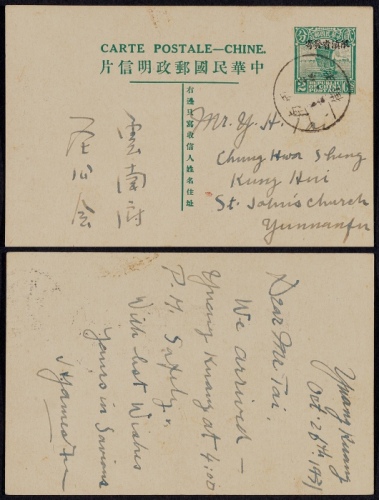 CARTE POSTALE—CHINE.
片信明政郵國民華中
限滇省貼用
2
右邊只寫收信人姓名住址
Mr. Y. H.
Chung Hwa Sheng
Kung Hui
St. John's Church
Yunnanfu
雲南府
聖公会
Yuang Kuang
Oct. 26th, 1931
Dear Mr Tai.
We arrived —
Yuang Kuang at 4:00
P. M. Safely.
With best Wishes
Yours in Saviour